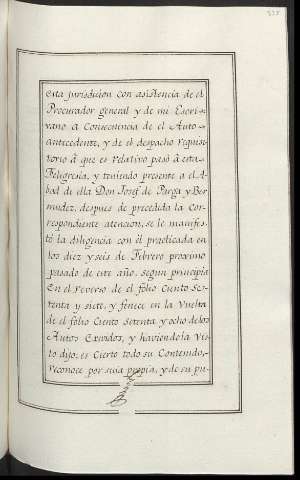 esta jurisdicion con asistencia de el
Procurador general y de mi Escri-
vano a Consecuencia de el Auto
antecedente, y de el despacho requisi-
torio â que es relativo pasó â esta
Feligresia, y teniendo presente a el A-
bad de ella Don Josef de Parga y Ber-
mudez, despues de precedida la Cor-
respondiente atencion, se le manifes-
tó la diligencia con él practicada en
los diez y seis de Febrero proximo
pasado de este año, segun principia
En el reverso de el folio Ciento Se-
tenta y siete, y fenece en la Vuelta
de el folio Ciento Setenta y ocho de los
Autos Exividos, y haviendola Vis-
to dijo: es Cierto todo su Contenido,
reconoce por suia propia, y de su pu-